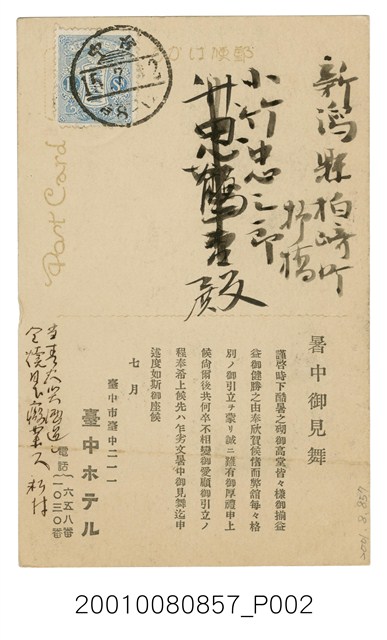 郵便はがき
Post Card
新潟縣柏崎町
小竹忠三郎
殿
暑中御見舞
謹啓時下酷暑之砌御高堂皆々様御揃益
益御健勝之由奉欣賀候偖而弊館毎々格
別ノ御引立ヲ蒙リ誠ニ難有御厚禮申上
候尚爾後共何卒不相變御愛顧御引立ノ
程奉希上候先ハ乍劣文暑中御見舞迄申
述度如斯御座候
七月
臺中市臺中二一一
臺中ホテル
電話 一六五八番
一〇三〇番
2001.8.857
20010080857_P002